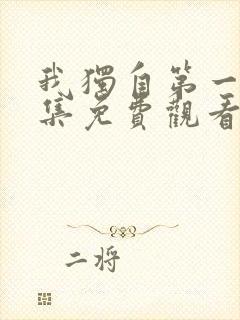 我獨自第一
集免費觀看
二将